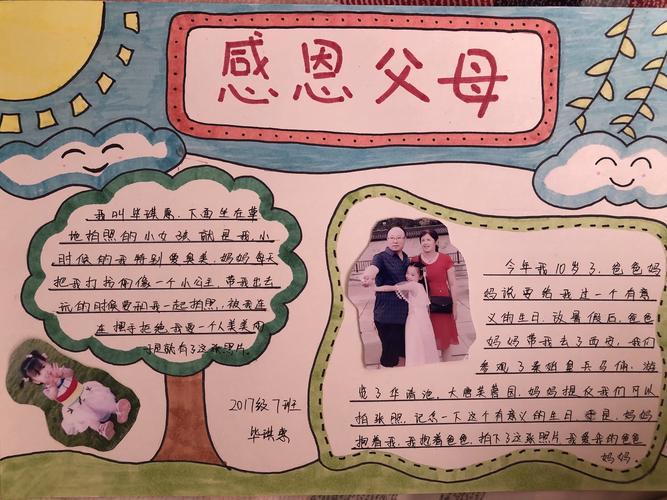 感恩父母
我叫华琪惠，下面坐在草
地拍照的小女孩就是我，小
时候的我特别爱臭美，妈妈每天
把我打扮的像一个小公主，带我出去
玩的时候要和我一起拍照，被我连
连摆手拒绝，我要一个人美美的
于是就有了这张照片。
2017级7班
华琪惠
今年我10岁了，爸爸妈
妈说要给我过一个有意
义的生日，放暑假后，爸爸
妈妈带我去了西安，我们
参观了秦始皇兵马俑，游
览了华清池，大唐芙蓉园，妈妈提议我们可以
拍张照，记念一下这个有意义的生日，于是，妈妈
抱着我，我抱着爸爸，拍下了这张照片，我爱我的爸爸
妈妈。